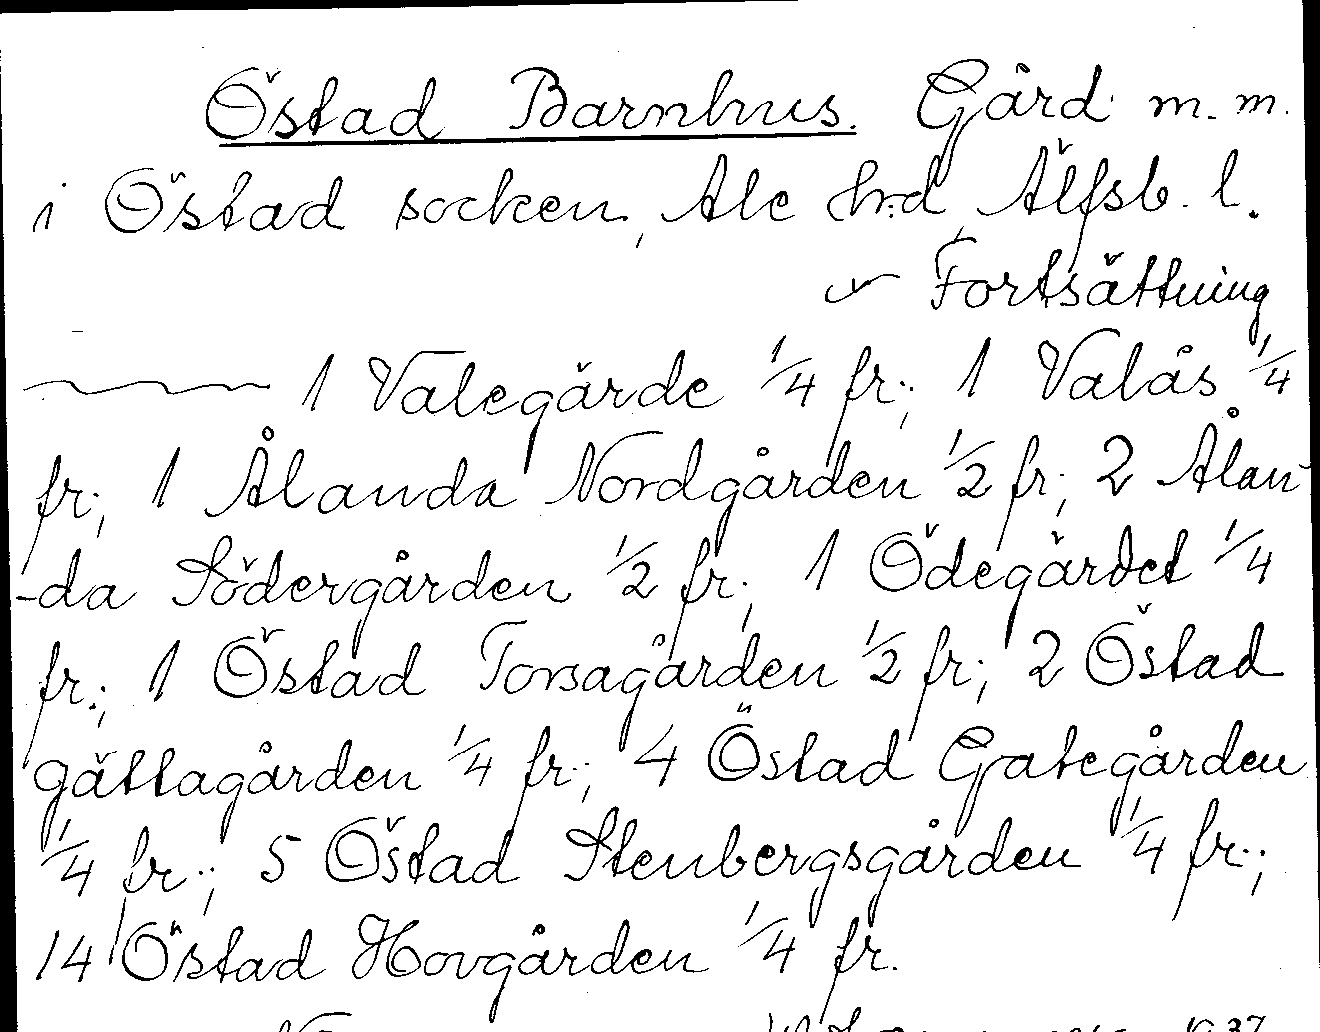 Östad Barnhus. Gård m. m.
i Östad socken, Ale hrd Älfsb. l.
Fortsättning
1 Valegärde 1/4 fr.; 1 Valås 1/4
fr.; 1 Ålanda Nordgården 1/2 fr.; 2 Ålan-
-da Södergården 1/2 fr.; 1 Ödegärdet 1/4
fr.; 1 Östad Torsagården 1/2 fr.; 2 Östad
gättagården 1/4 fr.; 4 Östad Gategården
1/4 fr.; 5 Östad Stenbergsgården 1/4 fr.;
14 Östad Hovgården 1/4 fr.
1937